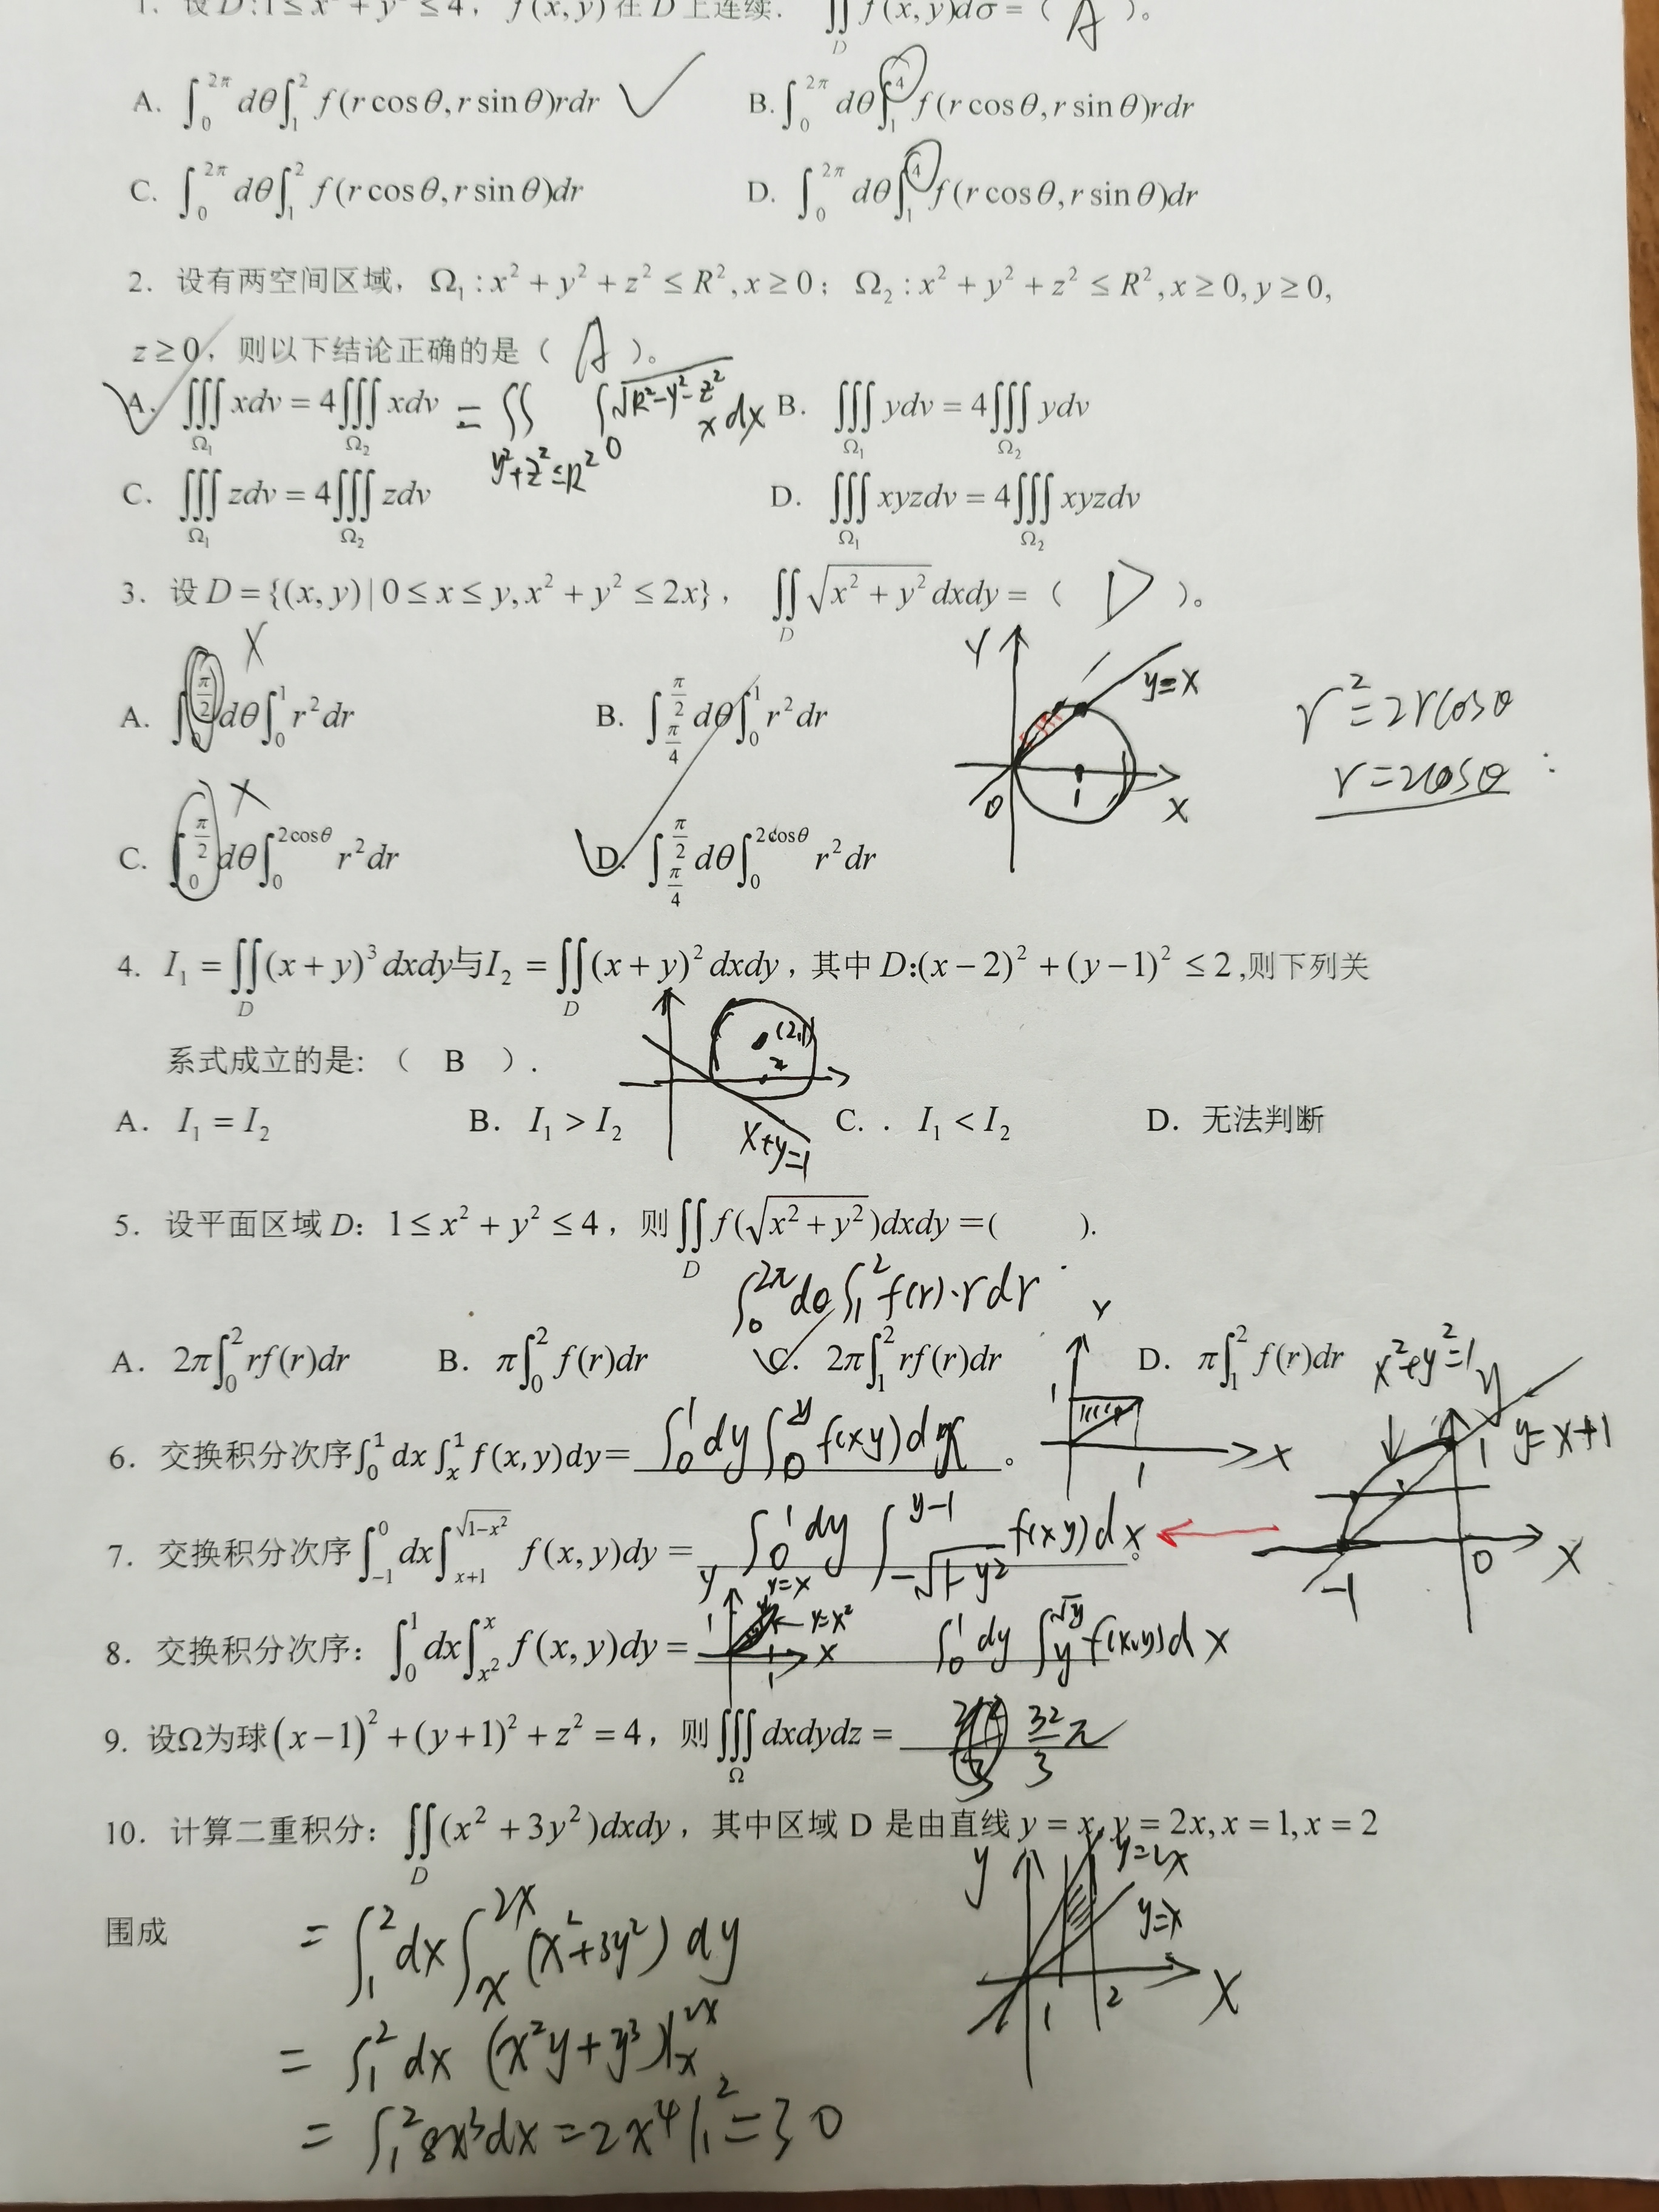 1. 设 D:1≤x²+y²≤4, f(x,y)在 D 上连续. ∬_D f(x,y)dσ=( A )。
A. ∫_0^{2π} dθ∫_1^2 f(r cosθ,r sinθ)rdr ✓ B. ∫_0^{2π} dθ∫_1^4 f(r cosθ,r sinθ)rdr
C. ∫_0^{2π} dθ∫_1^2 f(r cosθ,r sinθ)dr D. ∫_0^{2π} dθ∫_1^4 f(r cosθ,r sinθ)dr
2. 设有两空间区域, Ω₁:x²+y²+z²≤R²,x≥0; Ω₂:x²+y²+z²≤R²,x≥0,y≥0,
z≥0, 则以下结论正确的是( A )。
A. ∭_{Ω₁} xdv=4∭_{Ω₂} xdv =∬_{y²+z²≤R²} ∫_0^{√(R²-y²-z²)} x dx B. ∭_{Ω₁} ydv=4∭_{Ω₂} ydv
C. ∭_{Ω₁} zdv=4∭_{Ω₂} zdv D. ∭_{Ω₁} xyzdv=4∭_{Ω₂} xyzdv
3. 设 D={(x,y)|0≤x≤y,x²+y²≤2x}, ∬_D √(x²+y²)dxdy=( D )。
A. ∫_0^{π/2} dθ∫_0^1 r²dr X B. ∫_{π/4}^{π/2} dθ∫_0^1 r²dr
Y y=x 0 1 X
r²=2rcosθ
r=2cosθ
C. ∫_0^{π/2} dθ∫_0^{2cosθ} r²dr X D. ∫_{π/4}^{π/2} dθ∫_0^{2cosθ} r²dr
4. I₁=∬_D (x+y)³dxdy与I₂=∬_D (x+y)²dxdy, 其中 D:(x−2)²+(y−1)²≤2,则下列关
系式成立的是: ( B ).
(2,1) 2
x+y=1
A. I₁=I₂ B. I₁>I₂ C. . I₁<I₂ D. 无法判断
5. 设平面区域 D: 1≤x²+y²≤4, 则∬_D f(√(x²+y²))dxdy=( ).
∫_0^{2π}dθ∫_1^2 f(r)·rdr
A. 2π∫_0^2 rf(r)dr B. π∫_0^2 f(r)dr C. 2π∫_1^2 rf(r)dr D. π∫_1^2 f(r)dr
6. 交换积分次序∫_0^1 dx∫_x^1 f(x,y)dy= ∫_0^1 dy∫_0^y f(xy)dx 。
Y 1 1 X
x²+y²=1 y y=x+1 1 -1 0 X
7. 交换积分次序∫_{-1}^0 dx∫_{x+1}^{√(1−x²)} f(x,y)dy= ∫_0^1 dy∫_{-√(1-y²)}^{y-1} f(xy)dx 。
8. 交换积分次序: ∫_0^1 dx∫_{x²}^x f(x,y)dy= ∫_0^1 dy∫_y^{√y} f(x,y)dx
y y=x y=x² 1 1 X
9. 设Ω为球(x−1)²+(y+1)²+z²=4, 则∭_Ω dxdydz= 32/3 π
10. 计算二重积分: ∬_D (x²+3y²)dxdy, 其中区域 D 是由直线 y=x,y=2x,x=1,x=2
围成
y y=2x y=x 1 2 X
=∫_1^2 dx∫_x^{2x} (x²+3y²)dy
=∫_1^2 dx (x²y+y³)|_x^{2x}
=∫_1^2 8x³dx=2x⁴|_1^2=30